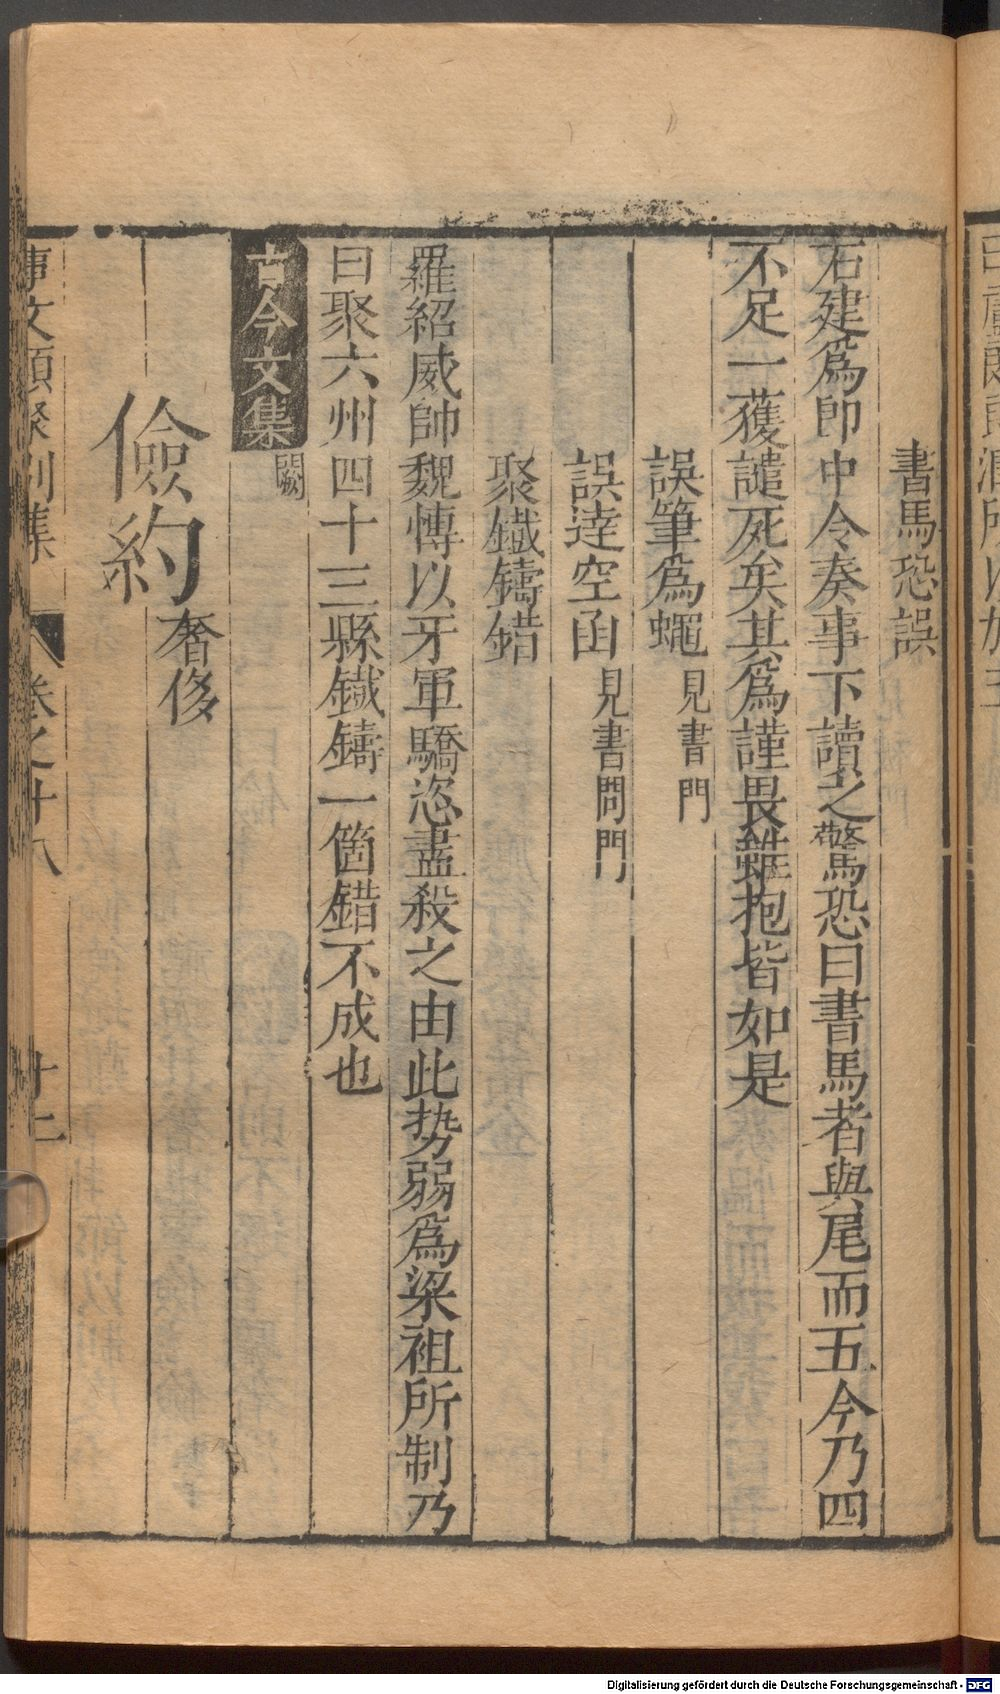 書馬恐誤
石建爲郎中令奏事下讀之驚恐曰書馬者與尾而五今乃四
不足一獲譴死矣其爲謹畏雖抱皆如是
誤筆爲蠅見書門
誤達空函見書問門
聚鐡鑄錯
羅紹威帥魏博以牙軍驕恣盡殺之由此势弱爲梁祖所制乃
曰聚六州四十三縣鐡鑄一箇錯不成也
古今文集闕
儉約奢侈
事文類聚别集 卷之十八 廿二
Digitalisierung gefördert durch die Deutsche Forschungsgemeinschaft - DFG